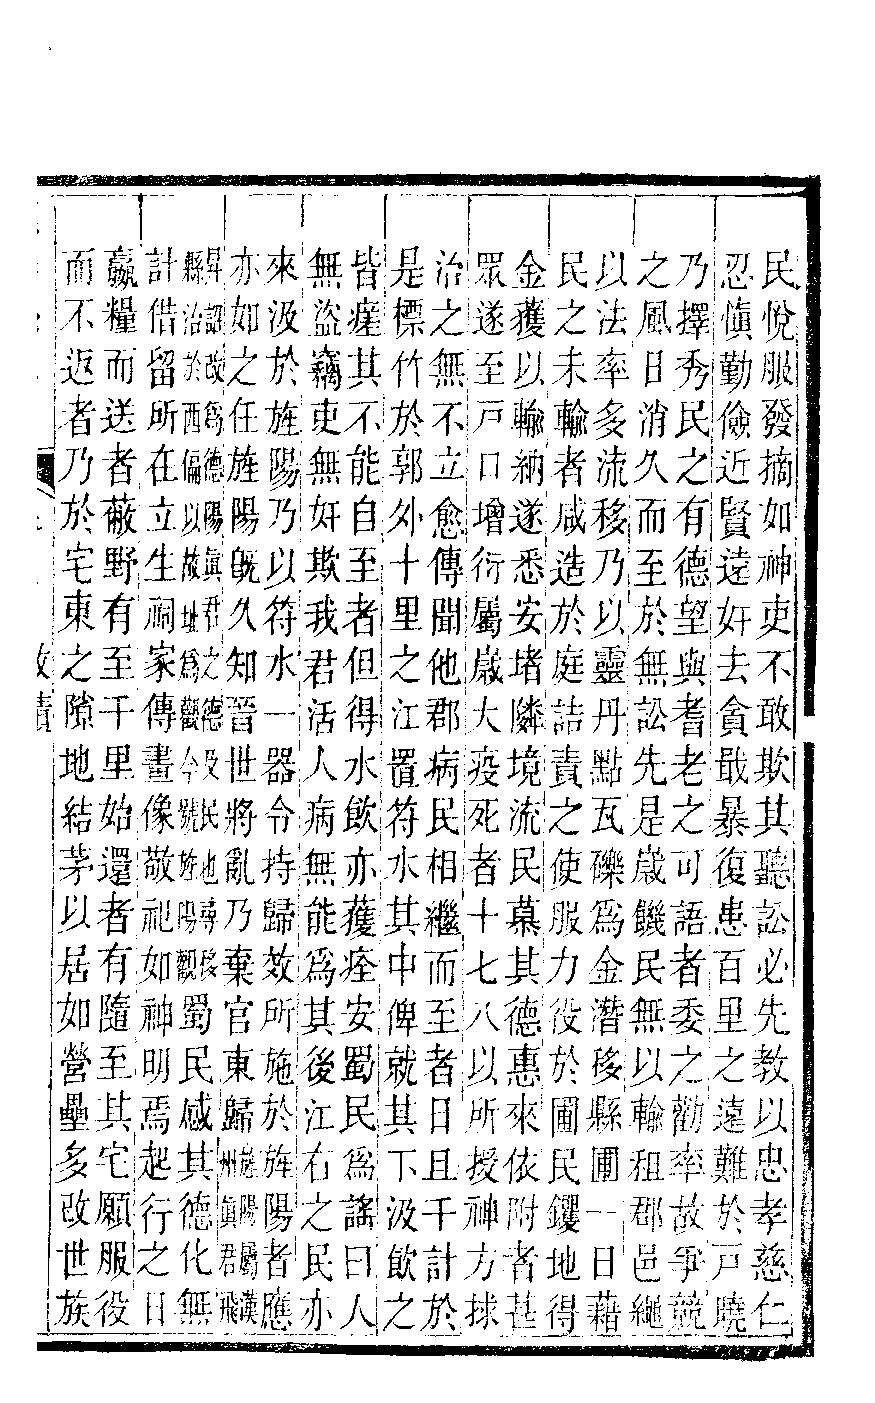 民悅服發摘如神吏不敢欺其聽訟必先教以忠孝慈仁
忍慎勤儉近賢遠奸去貪戢暴復患百里之遠難於戸曉
乃擇秀民之有德望與耆老之可語者委之勸率故爭競
之風日消久而至於無訟先是歲饑民無以輸租郡邑繩
以法率多流移乃以靈丹點瓦礫爲金潛移縣圃一日藉
民之未輸者咸造於庭詰責之使服力役於圃民钁地得
金獲以輸納遂悉安堵隣境流民慕其德惠來依附者甚
眾遂至戸口增衍屬歲大疫死者十七八以所授神方拯
治之無不立愈傳聞他郡病民相繼而至者日且千計於
是標竹於郭外十里之江置符水其中俾就其下汲飲之
皆瘥其不能自至者但得水飲亦獲痊安蜀民爲謠曰人
無盜竊吏無奸欺我君活人病無能爲其後江右之民亦
來汲於旌陽乃以符水一器令持歸效所施於旌陽者應
亦如之任旌陽既久知晉世將亂乃棄官東歸旌陽屬漢州眞君飛
昇詔改爲德陽眞君之德及民也尋移縣治於西偏以故址爲觀今號旌陽觀蜀民感其德化無
計借留所在立生祠家傳畫像敬祀如神明焉起行之日
贏糧而送者蔽野有至千里始還者有隨至其宅願服役
而不返者乃於宅東之隙地結茅以居如營壘多改世族